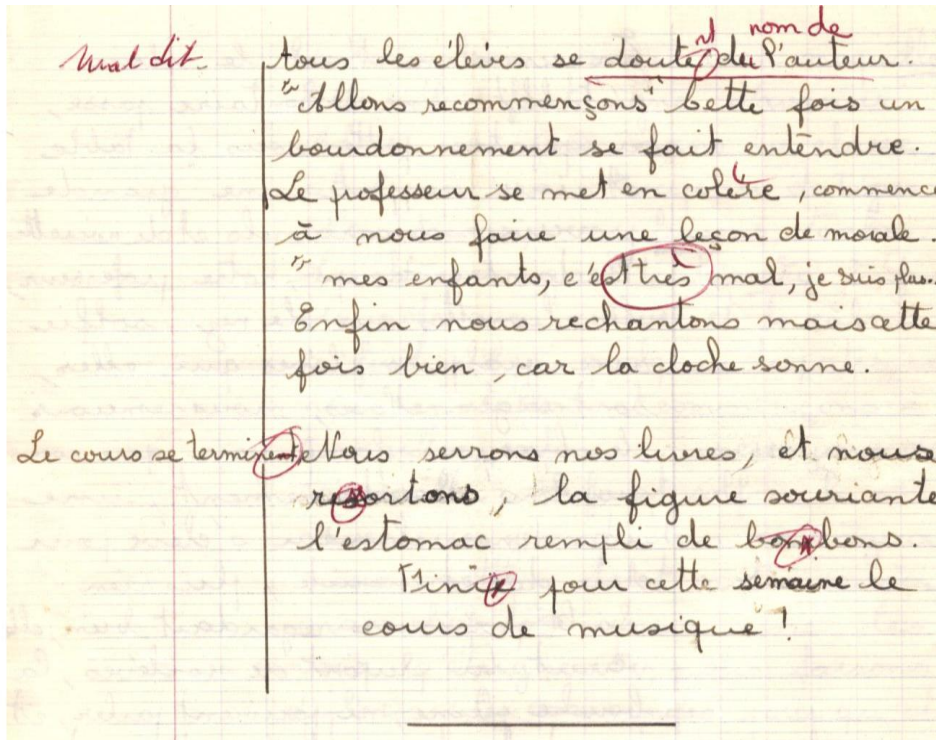 nom de
Mal dit. tous les élèves se doute nt du l'auteur.
"Allons recommençons" Cette fois un
bourdonnement se fait entendre.
Le professeur se met en colère, commence
à nous faire une leçon de morale.
" mes enfants, c'est très mal, je suis plus..
Enfin nous rechantons mais cette
fois bien, car la cloche sonne.
Le cours se terminent Nous serrons nos livres, et nous
ressortons, la figure souriante
l'estomac rempli de bonbons.
Finie pour cette semaine le
cours de musique !